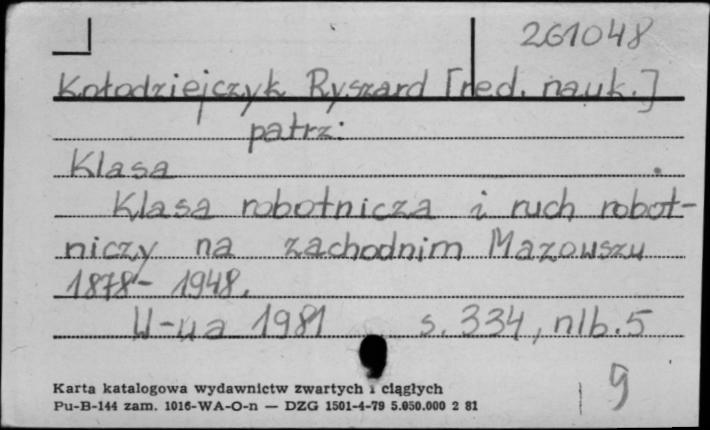 261048
Kołodziejczyk Ryszard [red. nauk.]
patrz:
Klasa
Klasa robotnicza i ruch robot-
niczy na zachodnim Mazowszu
1878- 1948.
W-wa 1981 s. 334, nlb. 5
9
Karta katalogowa wydawnictw zwartych i ciągłych
Pu-B-144 zam. 1016-WA-O-n — DZG 1501-4-79 5.050.000 2 81